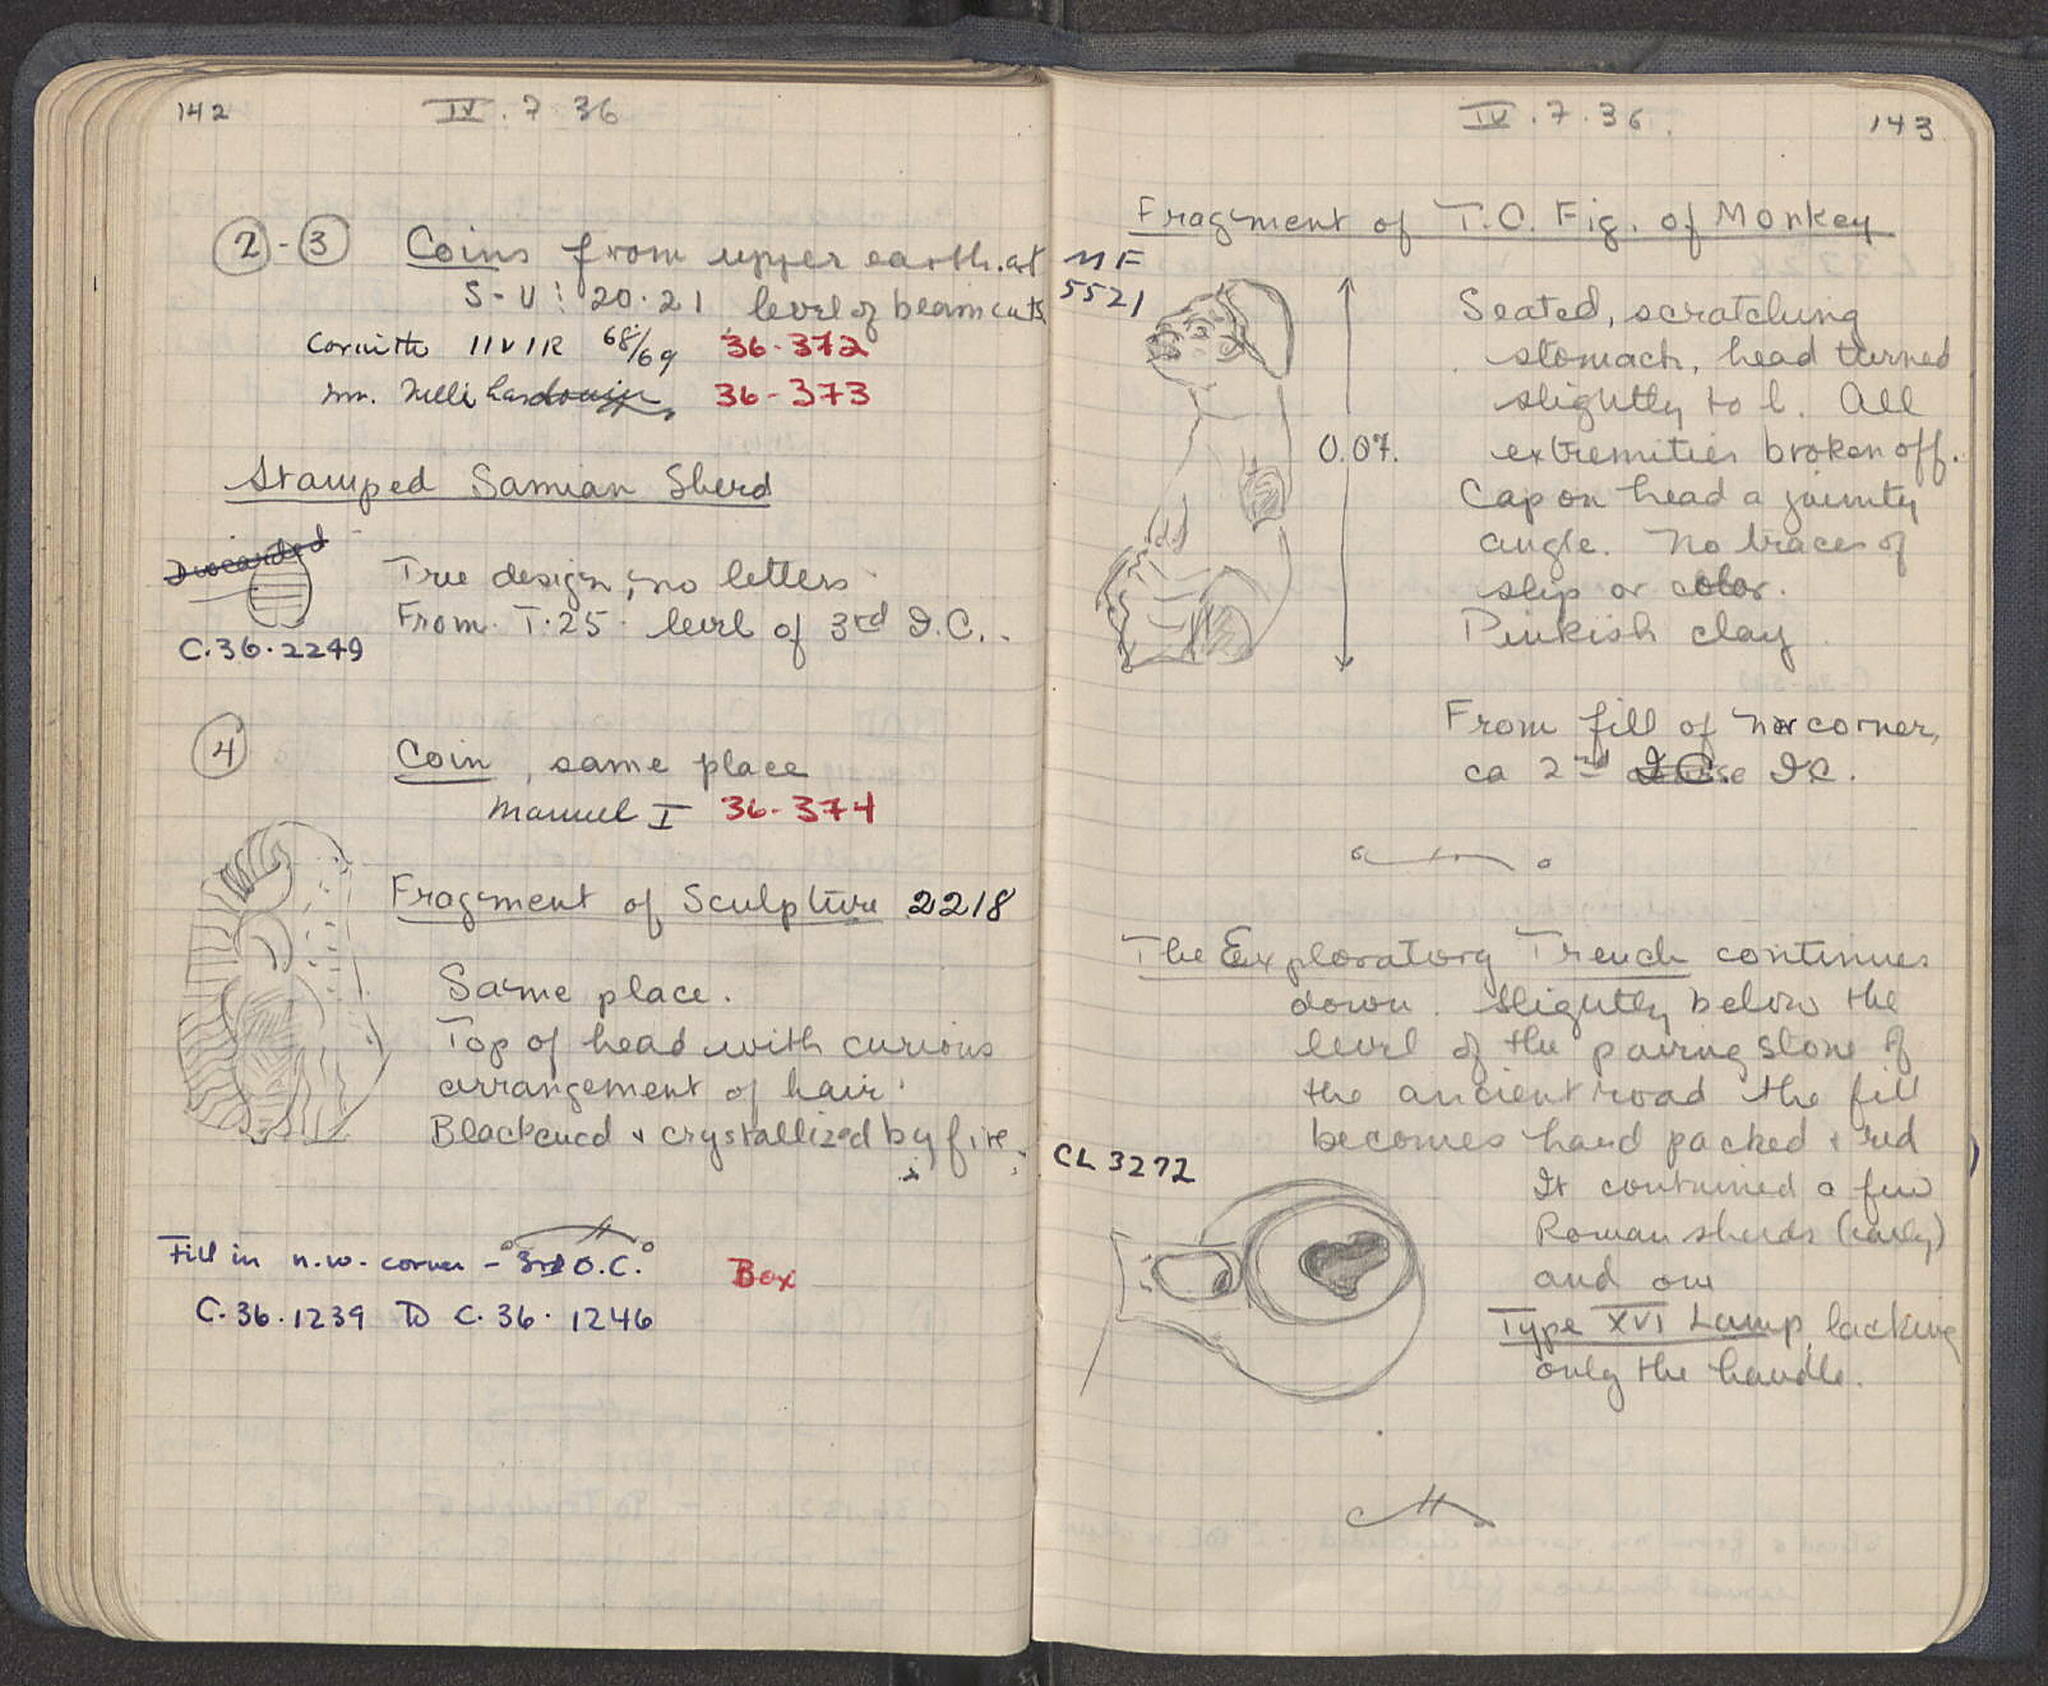 142
IV. 7 36
2 - 3 Coins from upper earth. at
S-U: 20.21 level of beam cuts
Corinth IIVIR 68/69 36-372
36-373
Stamped Samian Sherd
Discarded
Tree design, no letters
From T.25 level of 3rd D.C.
C.36.2249
4 Coin, same place
Manuel I 36-374
Fragment of Sculpture 2218
Same place.
Top of head with curious
arrangement of hair.
Blackened & crystallized by fire.
Fill in n.w. corner - 3rd D.C. Box
C.36.1239 To C.36.1246
IV. 7. 36.
143
Fragment of T.C. Fig. of Monkey
MF
5521
Seated, scratching
stomach, head turned
slightly to l. All
0.07. extremities broken off.
Cap on head a jaunty
angle. No traces of
slip or color.
Pinkish clay.
From fill of NW corner,
ca 2nd D.C.
The Exploratory Trench continues
down. Slightly below the
level of the paving stone of
the ancient road the fill
becomes hard packed & red
CL 3272
It contained a few
Roman sherds (early)
and one
Type XVI Lamp, lacking
only the handle.